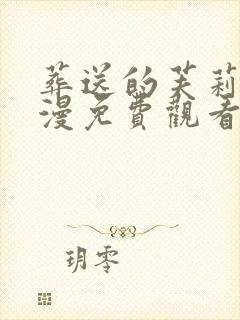 葬送的芙莉
漫免費觀看
玥零